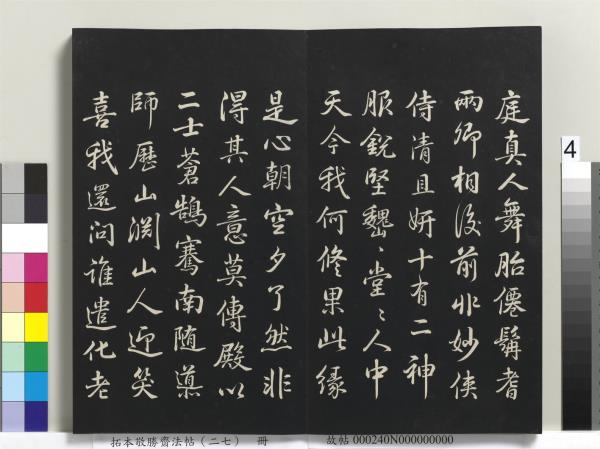 庭真人舞胎僊髯耆
兩卿相後前丱妙侠
侍清且妍十有二神
服銳堅巍〻堂〻人中
天今我何修果此緣
是心朝空夕了然非
得其人意莫傳殿以
二士蒼鵠騫南隨道
師歷山淵山人迎笑
喜我還問誰遣化老
4
拓本敬勝齋法帖（二七） 冊
故帖 000240N000000000